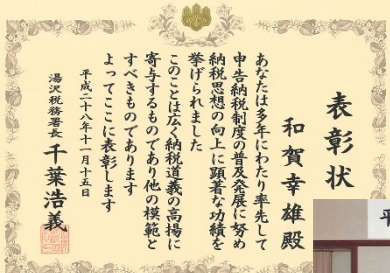 表彰状
和賀幸雄殿
あなたは多年にわたり率先して
申告納税制度の普及発展に努め
納税思想の向上に顕著な功績を
挙げられました
このことは広く納税道義の高揚に
寄与するものであり他の模範と
すべきものであります
よってここに表彰します
平成二十八年十一月十五日
湯沢税務署長 千葉浩義